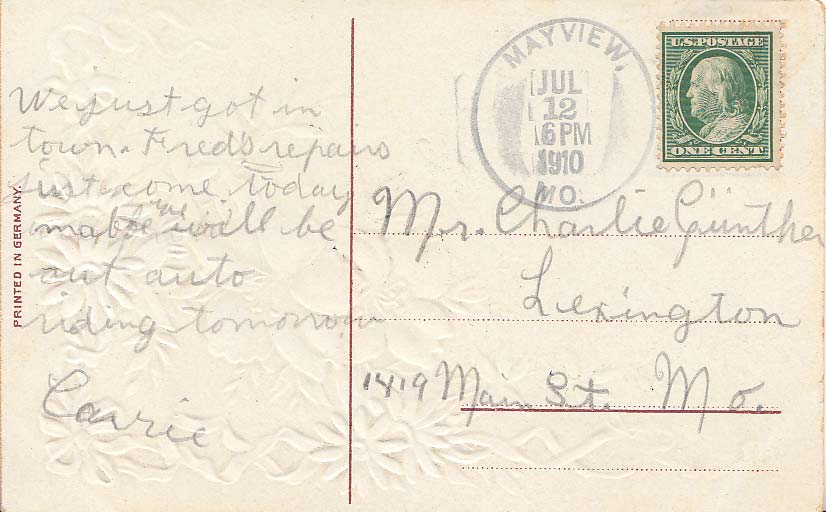 We just got in
town. Fred's repairs
just come today
mabe we will be
out auto
riding tomorrow
Carrie
PRINTED IN GERMANY.
MAYVIEW,
JUL
12
6 PM
1910
MO.
U.S. POSTAGE
ONE CENT
Mr. Charlie Günther
Lexington
1419 Main St. Mo.